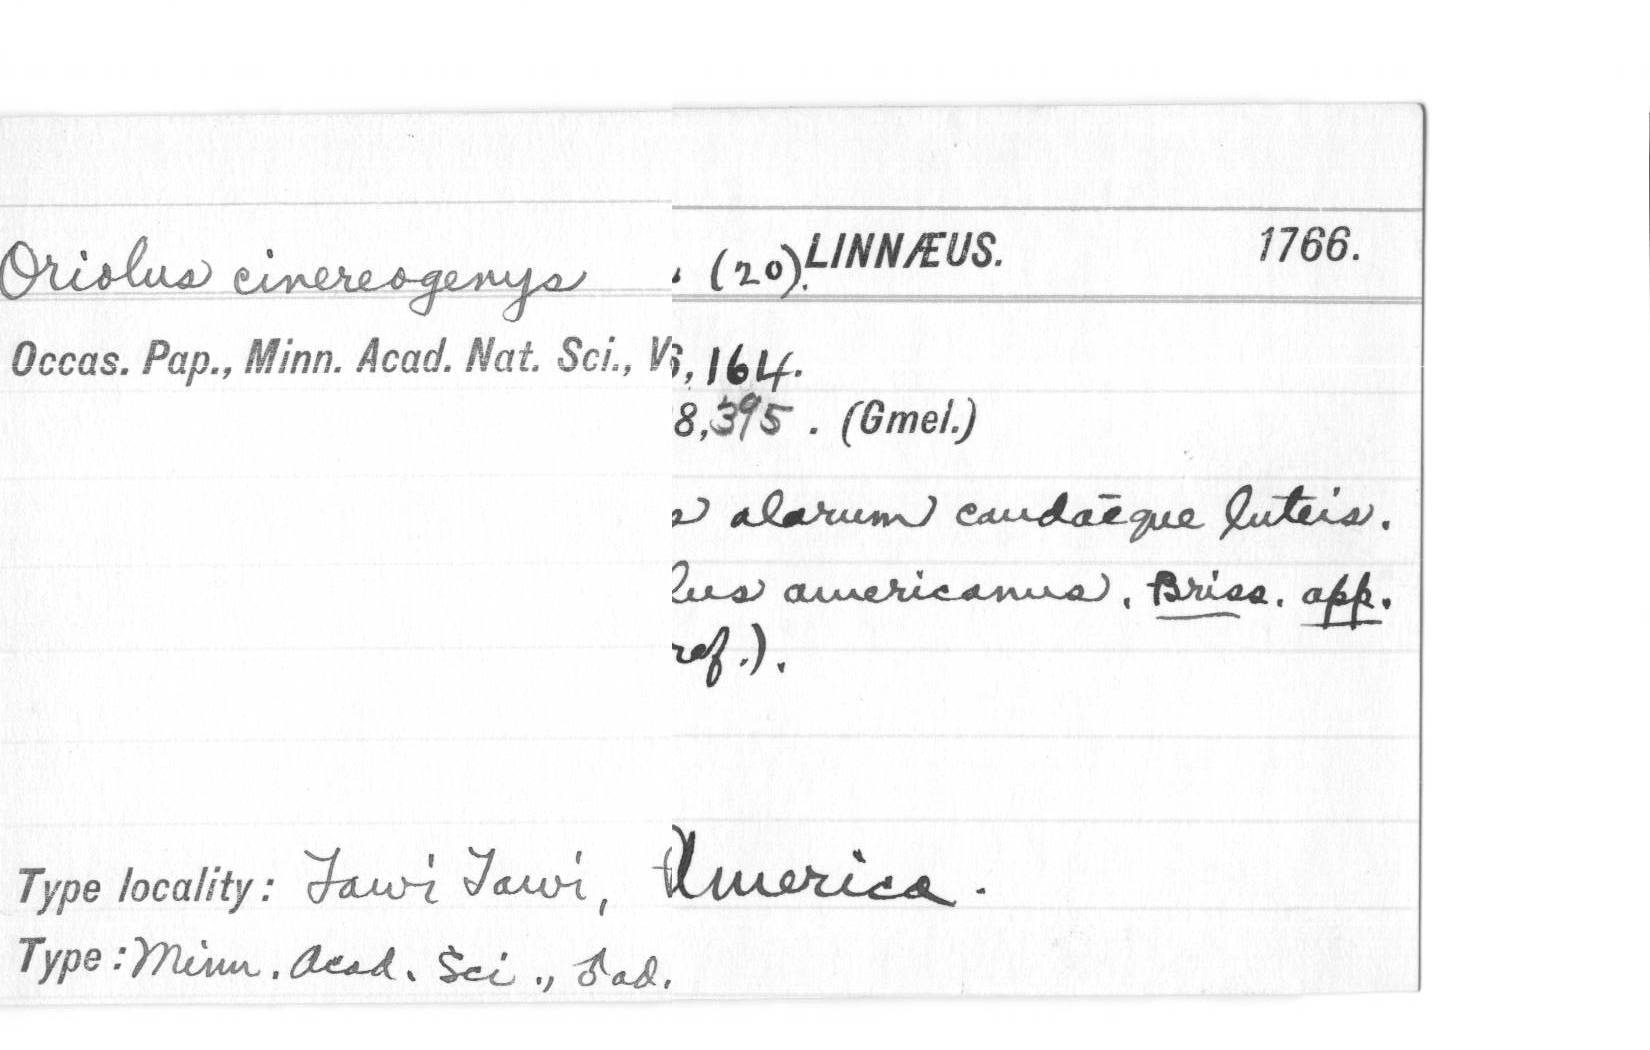 Oriolus cinereogenys . (20). LINNÆUS. 1766.
Occas. Pap., Minn. Acad. Nat. Sci., V 3, 164.
8,395 . (Gmel.)
s alarum caudaēque luteis.
lus americanus. Briss. app.
ref.).
Type locality: Tawi Tawi, America.
Type: Minn. Acad. Sci., ♂ad.